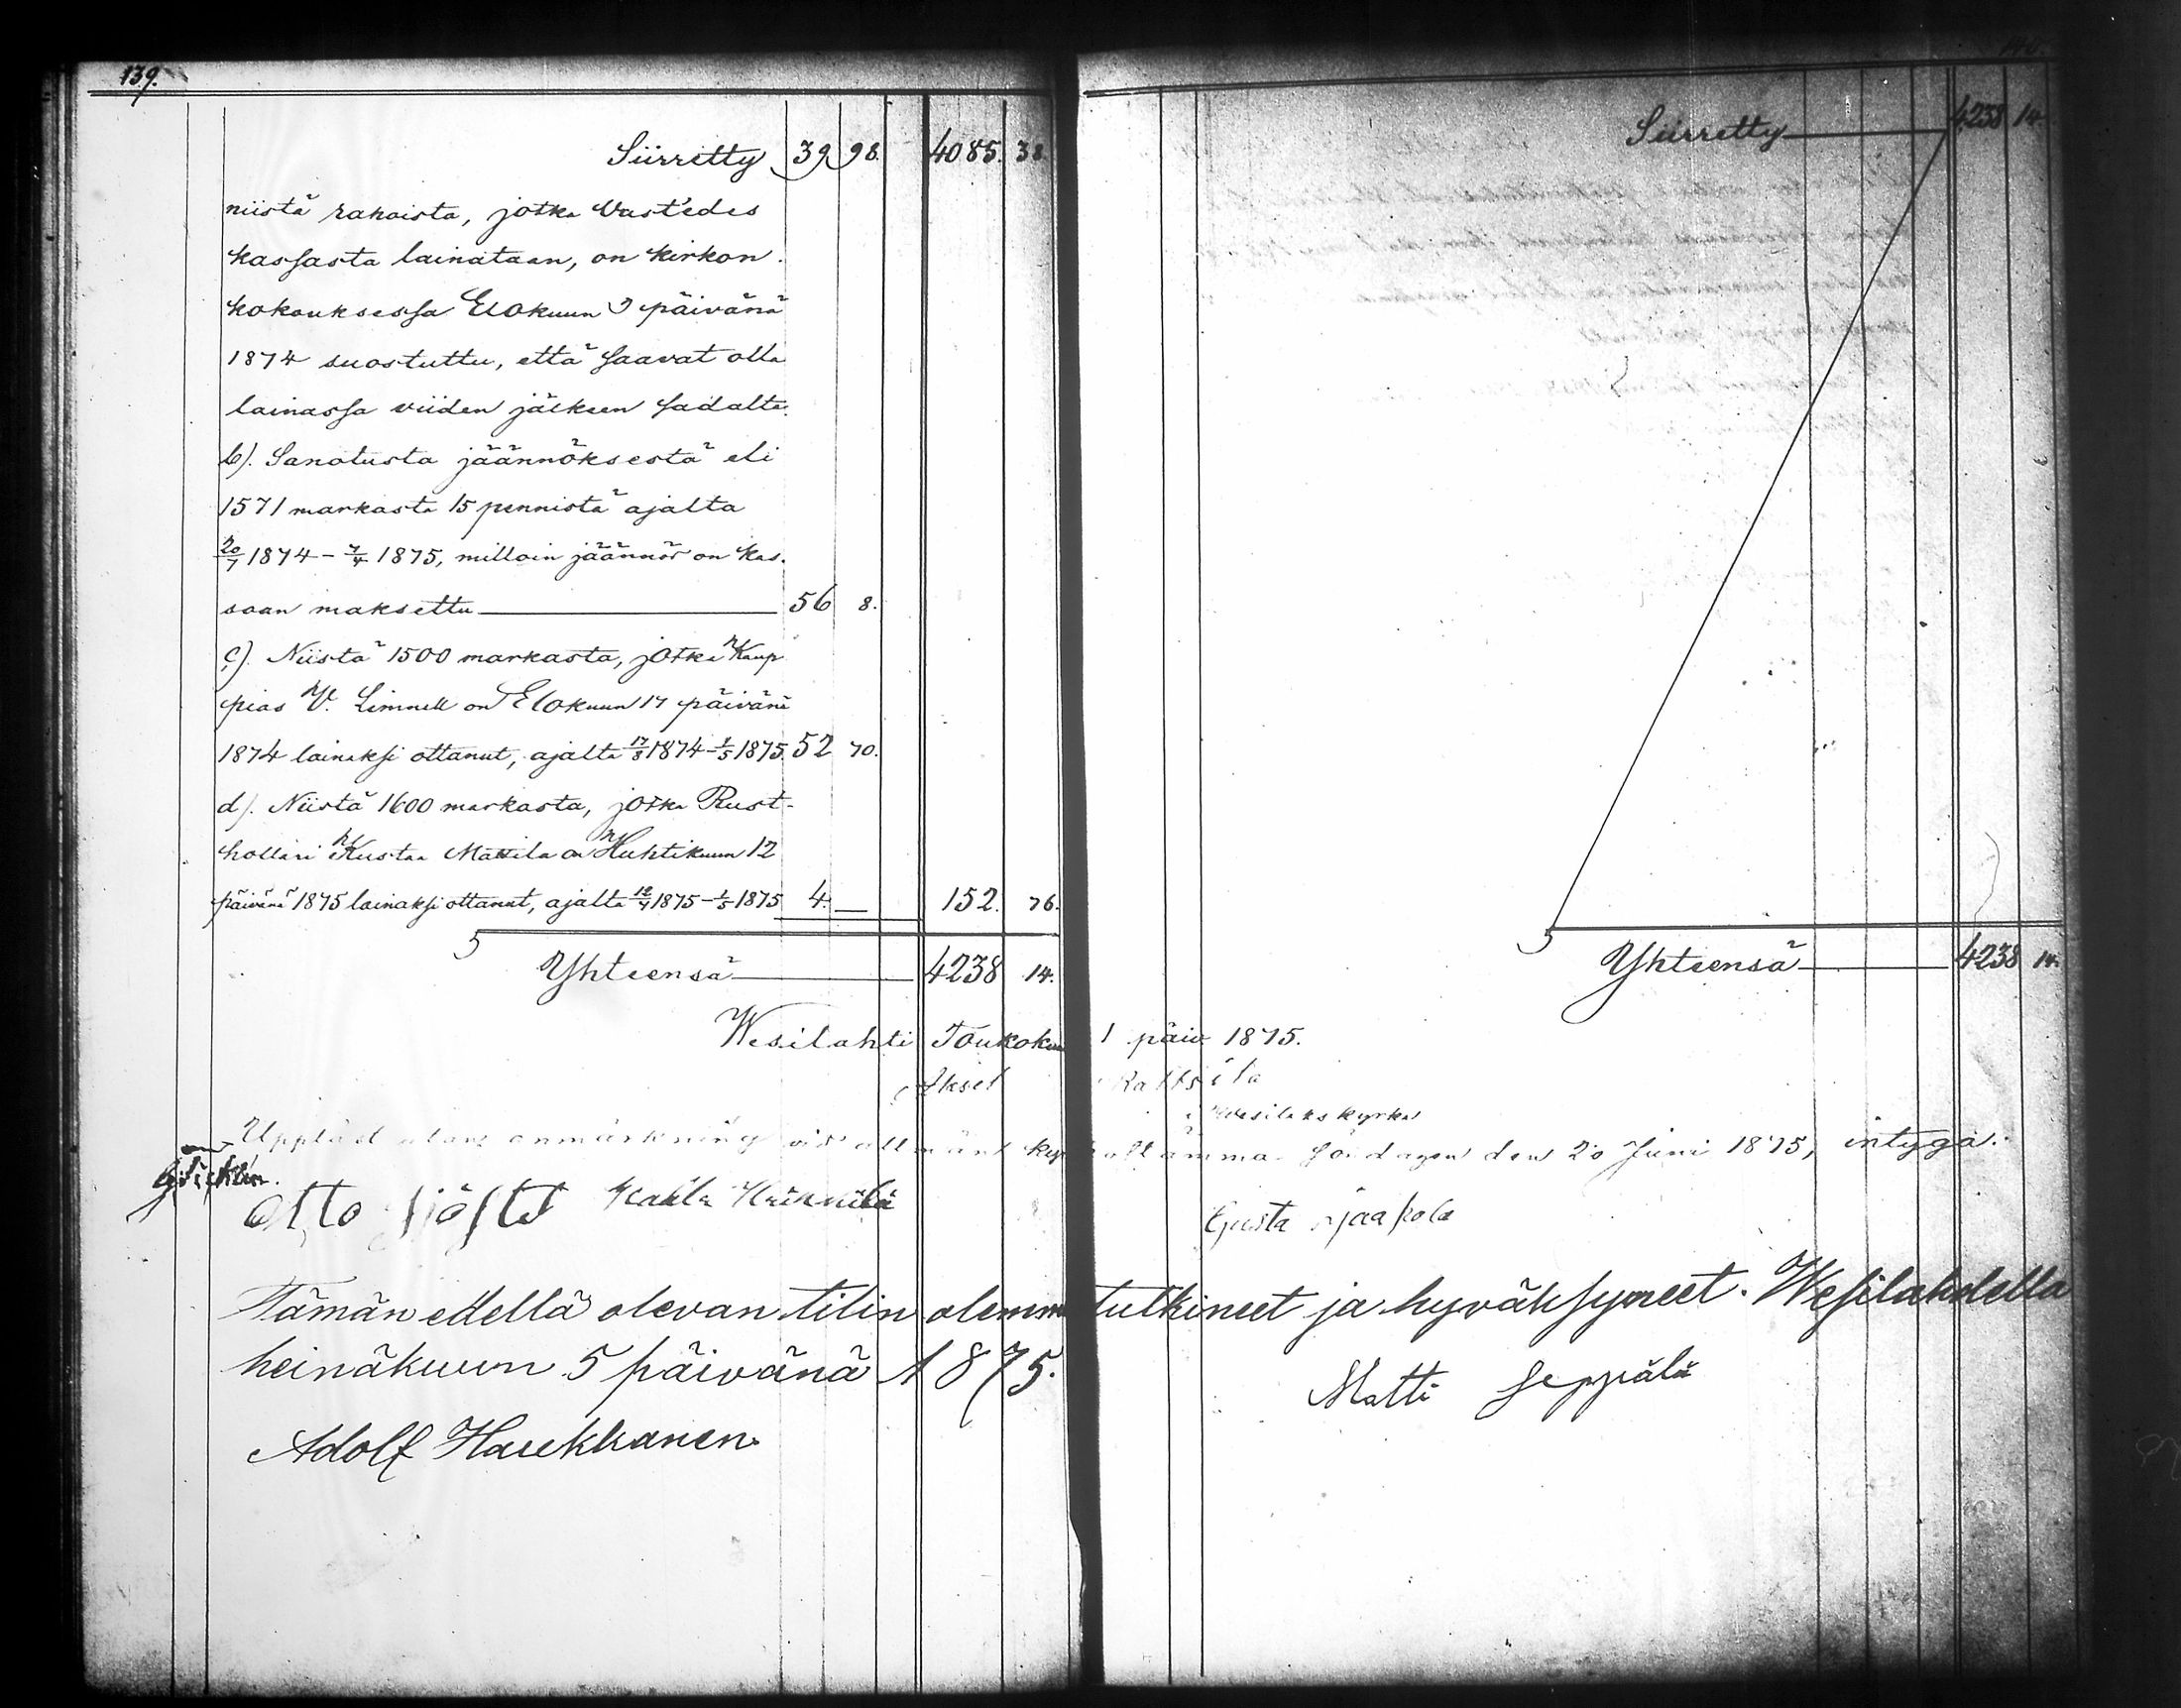 139.
Siirretty 39 98. 4085. 38.
niistä rahoista, jotka vast'edes
kassasta lainataan, on kirkon-
kokouksessa Elokuun 9 päivänä
1874 suostuttu, että saavat olla
lainassa viiden jälkeen sadalta.
b). Sanotusta jäännöksestä eli
1571 markasta 15 pennistä ajalta
20/7 1874 - 7/4 1875, milloin jäännös on kas-
saan maksettu 56 8.
c). Niistä 1500 markasta, jotka Kaup-
pias V. Limnell on Elokuun 17 päivänä
1874 lainaksi ottanut, ajalta 17/8 1874 - 1/5 1875. 52 70.
d). Niistä 1600 markasta, jotka Rust-
hollari Kustaa Mattila on Huhtikuun 12
päivänä 1875 lainaksi ottanut, ajalta 12/4 1875 - 1/5 1875 4. — 152. 76.
Yhteensä 4238 14.
Siirretty 4238 14.
Yhteensä 4238 14.
Wesilahti Toukokuun 1 päiv 1875.
Aksel
Uppläst utan anmärkning vid allmänt kyrkostämma i Wesilaks kyrka Söndagen den 20 Juni 1875, intyga:
Otto Sjösted Kalle Heikkilä Gusta Jaakola
Tämän edellä olevan tilin olemme tutkineet ja hyväksyneet. Wesilahdella
heinäkuun 5 päivänä 1875.
Adolf Haukkanen Matti Seppälä